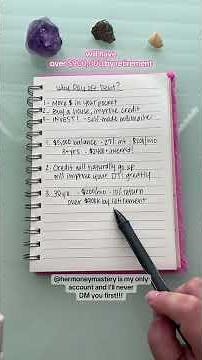 will have
over $900,000 by retirement
Why Pay Off Debt?
1 - More $ in your pocket
2 - Buy a house, improve credit
3 - INVEST! - self-made millionaire
1. $5,000 balance - 27% int - $200/mo
3+ yrs → $2400+ interest!
2. Credit will naturally go up
will improve your DTI greatly
3. 30 yrs - $200/mo - 10% return
over $400k by retirement
@hermoneymastery is my only
account and I'll never
DM you first!!!